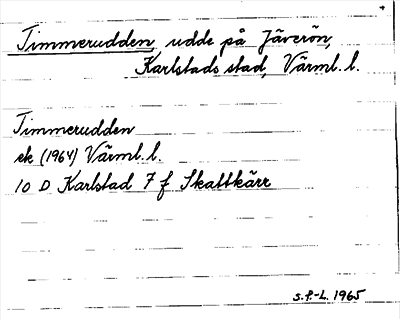 Timmerudden, udde på Jäverön,
Karlstads stad, Värml. l.
Timmerudden
ek (1964) Värml. l.
10 D Karlstad 7 f Skattkärr
S.F.-L. 1965